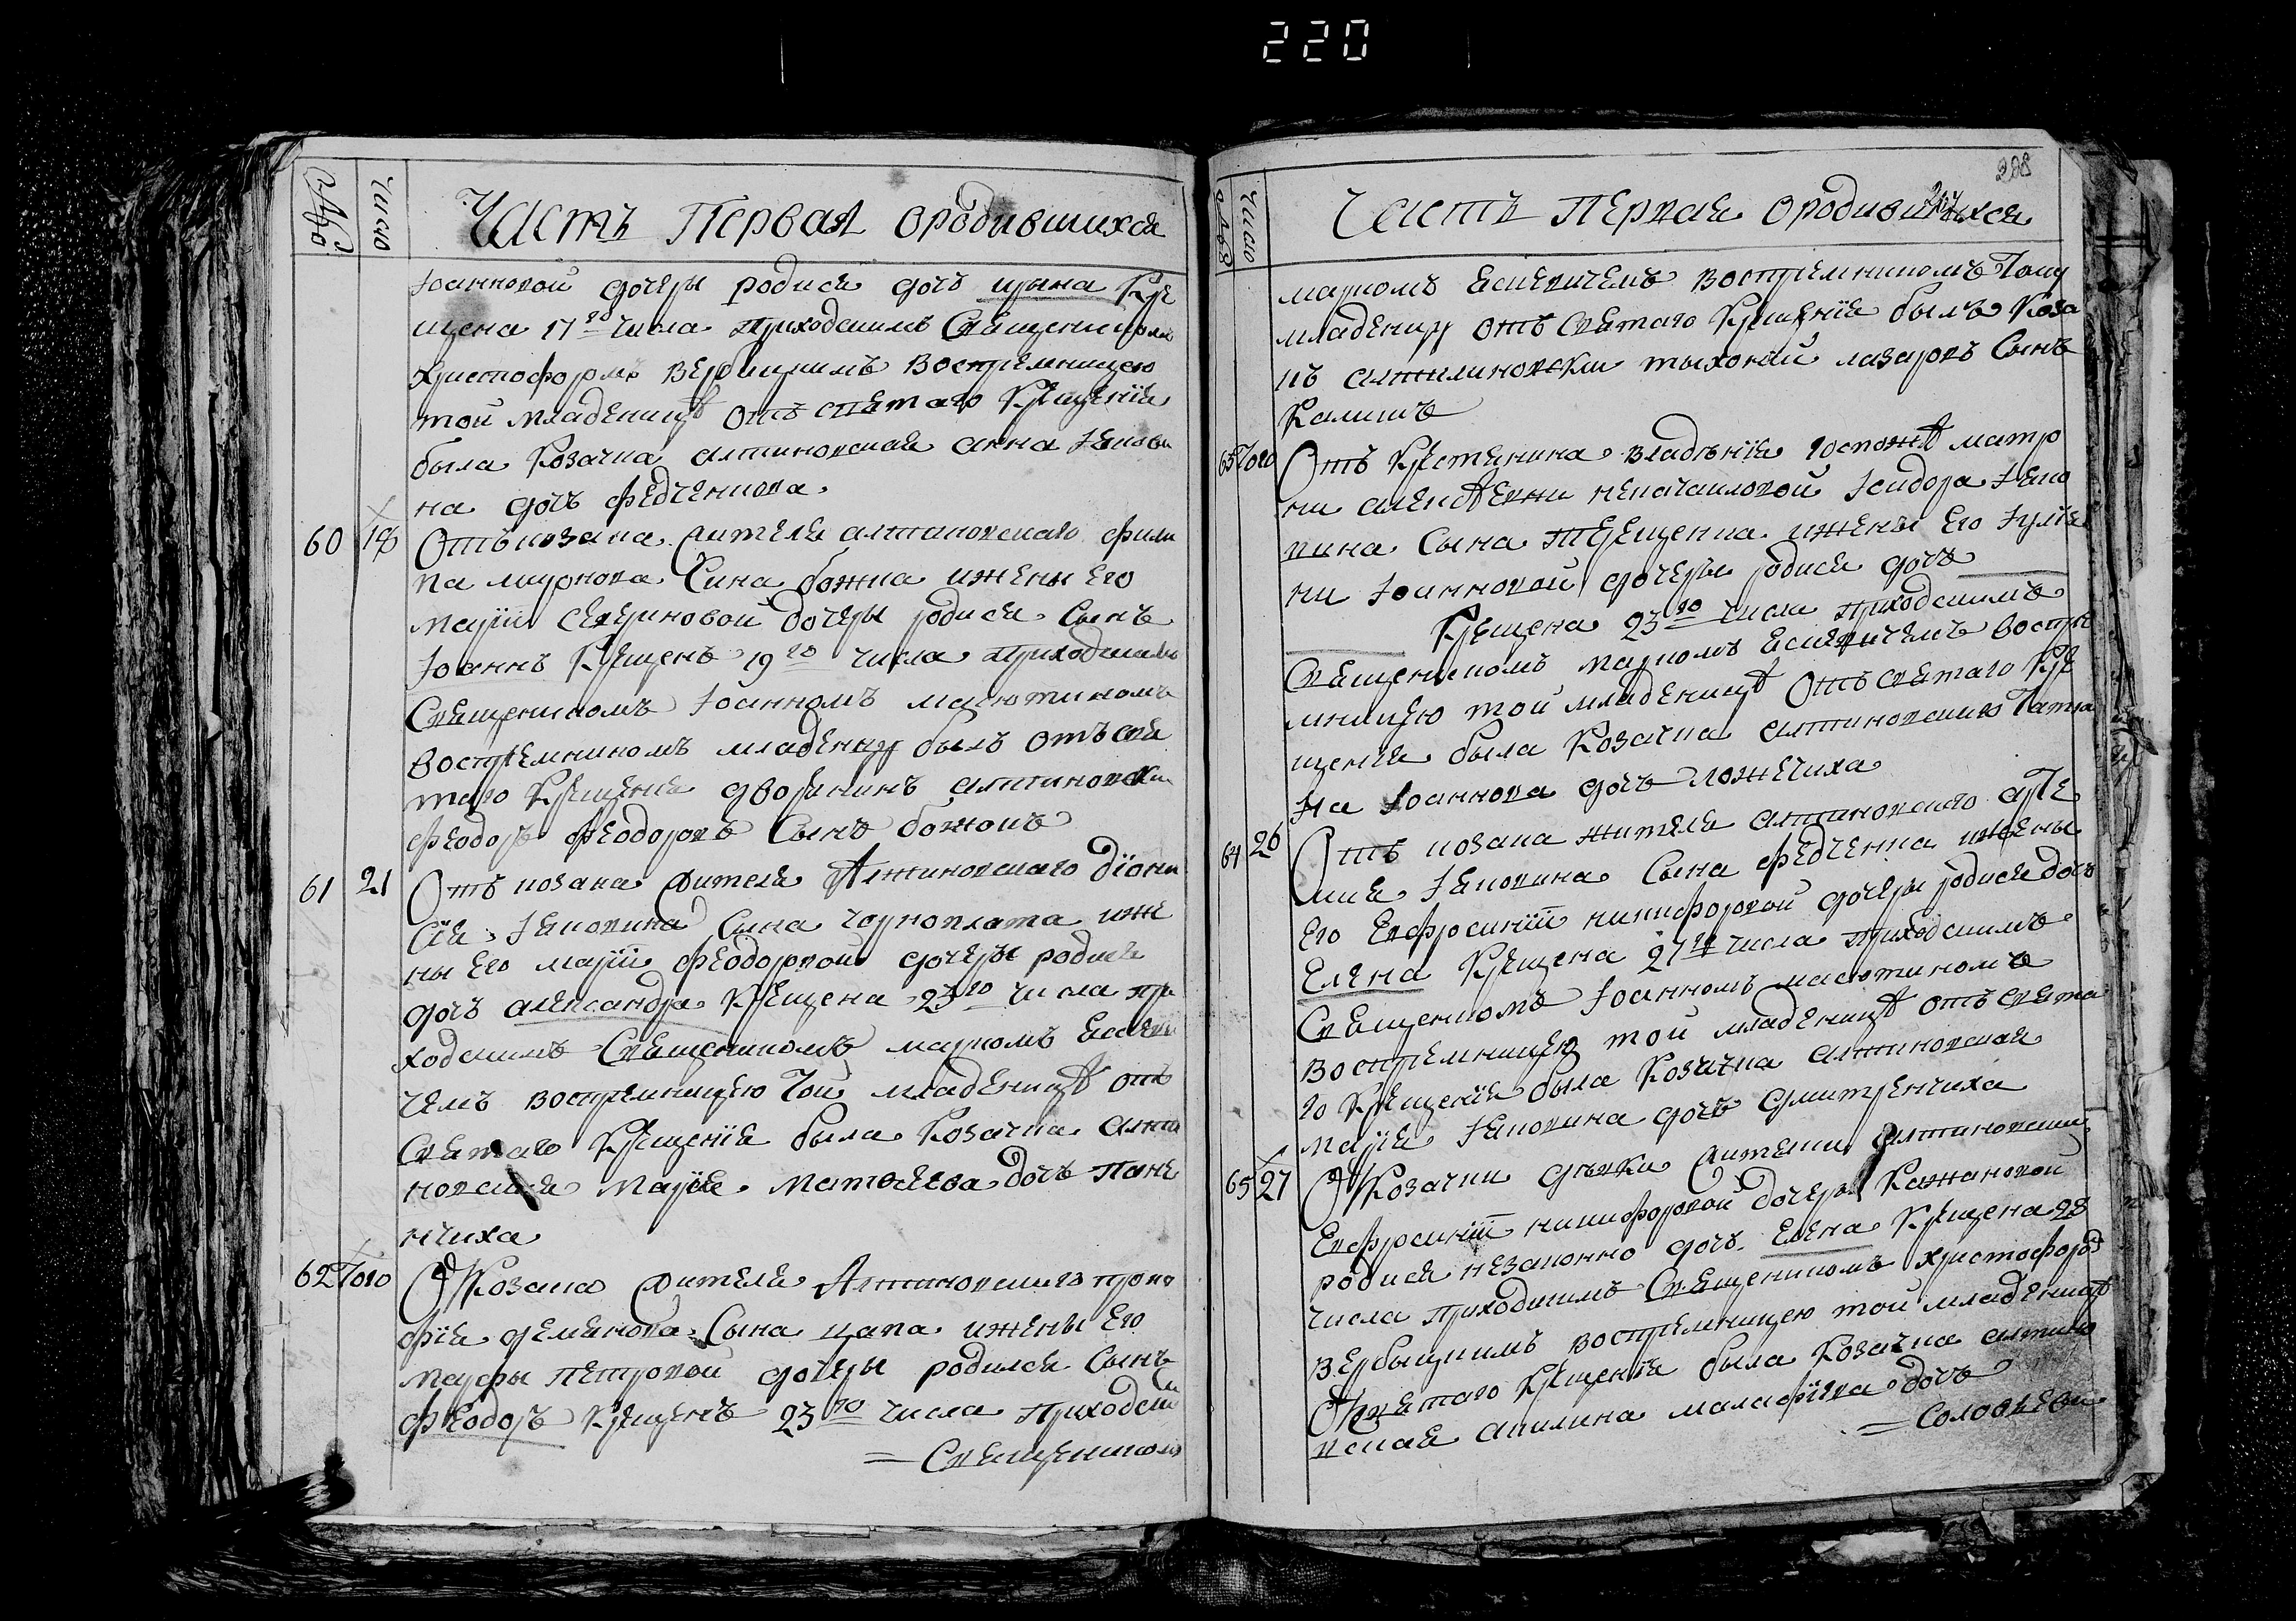 220
№
Число
Часть Первая ородившихся
Іоанновой дочеры родися дочъ ирына Кре
щена 17го числа приходскимъ Священником
Христофоромъ Вербицкимъ Воспріемницею
той младеницѣ отъ святаго Крещенія
была Козачка алтиновская анна Іаковли
на дочъ федченкова
60 18 Отъ козака жителя алтиновскаго фили
па миронова Сина божка ижени Его
маріи Севериновой дочеры родися Сынъ
Іоаннъ Крещенъ 19го числа приходскимъ
Священникомъ Іоанномъ масютиномъ
воспріемникомъ младенцу былъ отъ свя
таго Крещенія дворянинъ алтиновски
феодоръ феодоровъ Сынъ божокъ
61 21 Отъ козака жителя Алтиновскаго діони
сія Іаковлина Сына чорноплата иже
ны Его маріи феодоровой дочеры родися
дочъ александра Крещена 23го числа при
ходскимъ Священникомъ маркомъ Есиеви
чемъ воспріемницею той младеницѣ отъ
Святаго Крещенія была Козачка алти
новская марія матвѣева дочъ пане
нчиха
62 Того От Козака жителя Алтиновскаго проко
фія демянова Сына цапа ижены Его
марфы петровой дочеры родился Сынъ
феодоръ Крещенъ 23го числа приходски
Священником
208
№
Число
Часть первая ородившихся
маркомъ Есиевичемъ воспріемникомъ Тому
младенцу отъ святаго Крещенія былъ Коза
къ алтиновски тыхоній лазаровъ Сынъ
Калишъ
63 Того Отъ Крестянина владѣнія госпожѣ матро
ни алексѣевни непачаиловой Ісидора Іако
вина Сына терещенка ижены Его Іуліа
ни Іоанновой дочеры родися дочъ
Крещена 23го числа приходскимъ
Священикомъ маркомъ Есиевичемъ воспріе
мницею той младеницѣ отъ святаго Кре
щенія была Козачка алтиновскаго Татіа
на Іоаннова дочъ ложечиха
64 26 Отъ козака жителя алтиновского арте
мия Іаковина Сына федченка ижены
Его Евфросиніи никифоровой дочеры родися дочъ
Елена Крещена 27го числа приходскимъ
Священикомъ Іоанномъ масютиномъ
воспріемницею той младеницѣ отъ свята
го Крещенія была Козачка алтиновская
марія Іаковина дочъ дмитренчиха
65 27 От Козачки дѣвки жителки алтиновски
Евфросиніи никифоровой дочеры Кажановой
родися незаконно дочъ Елена Крещена 28
числа приходскимъ Священикомъ христофоро
Вербыцкимъ воспріемницею той младеницѣ
От святаго Крещенія была Козачка алтино
вская акилина малафіева дочъ
Соловьева